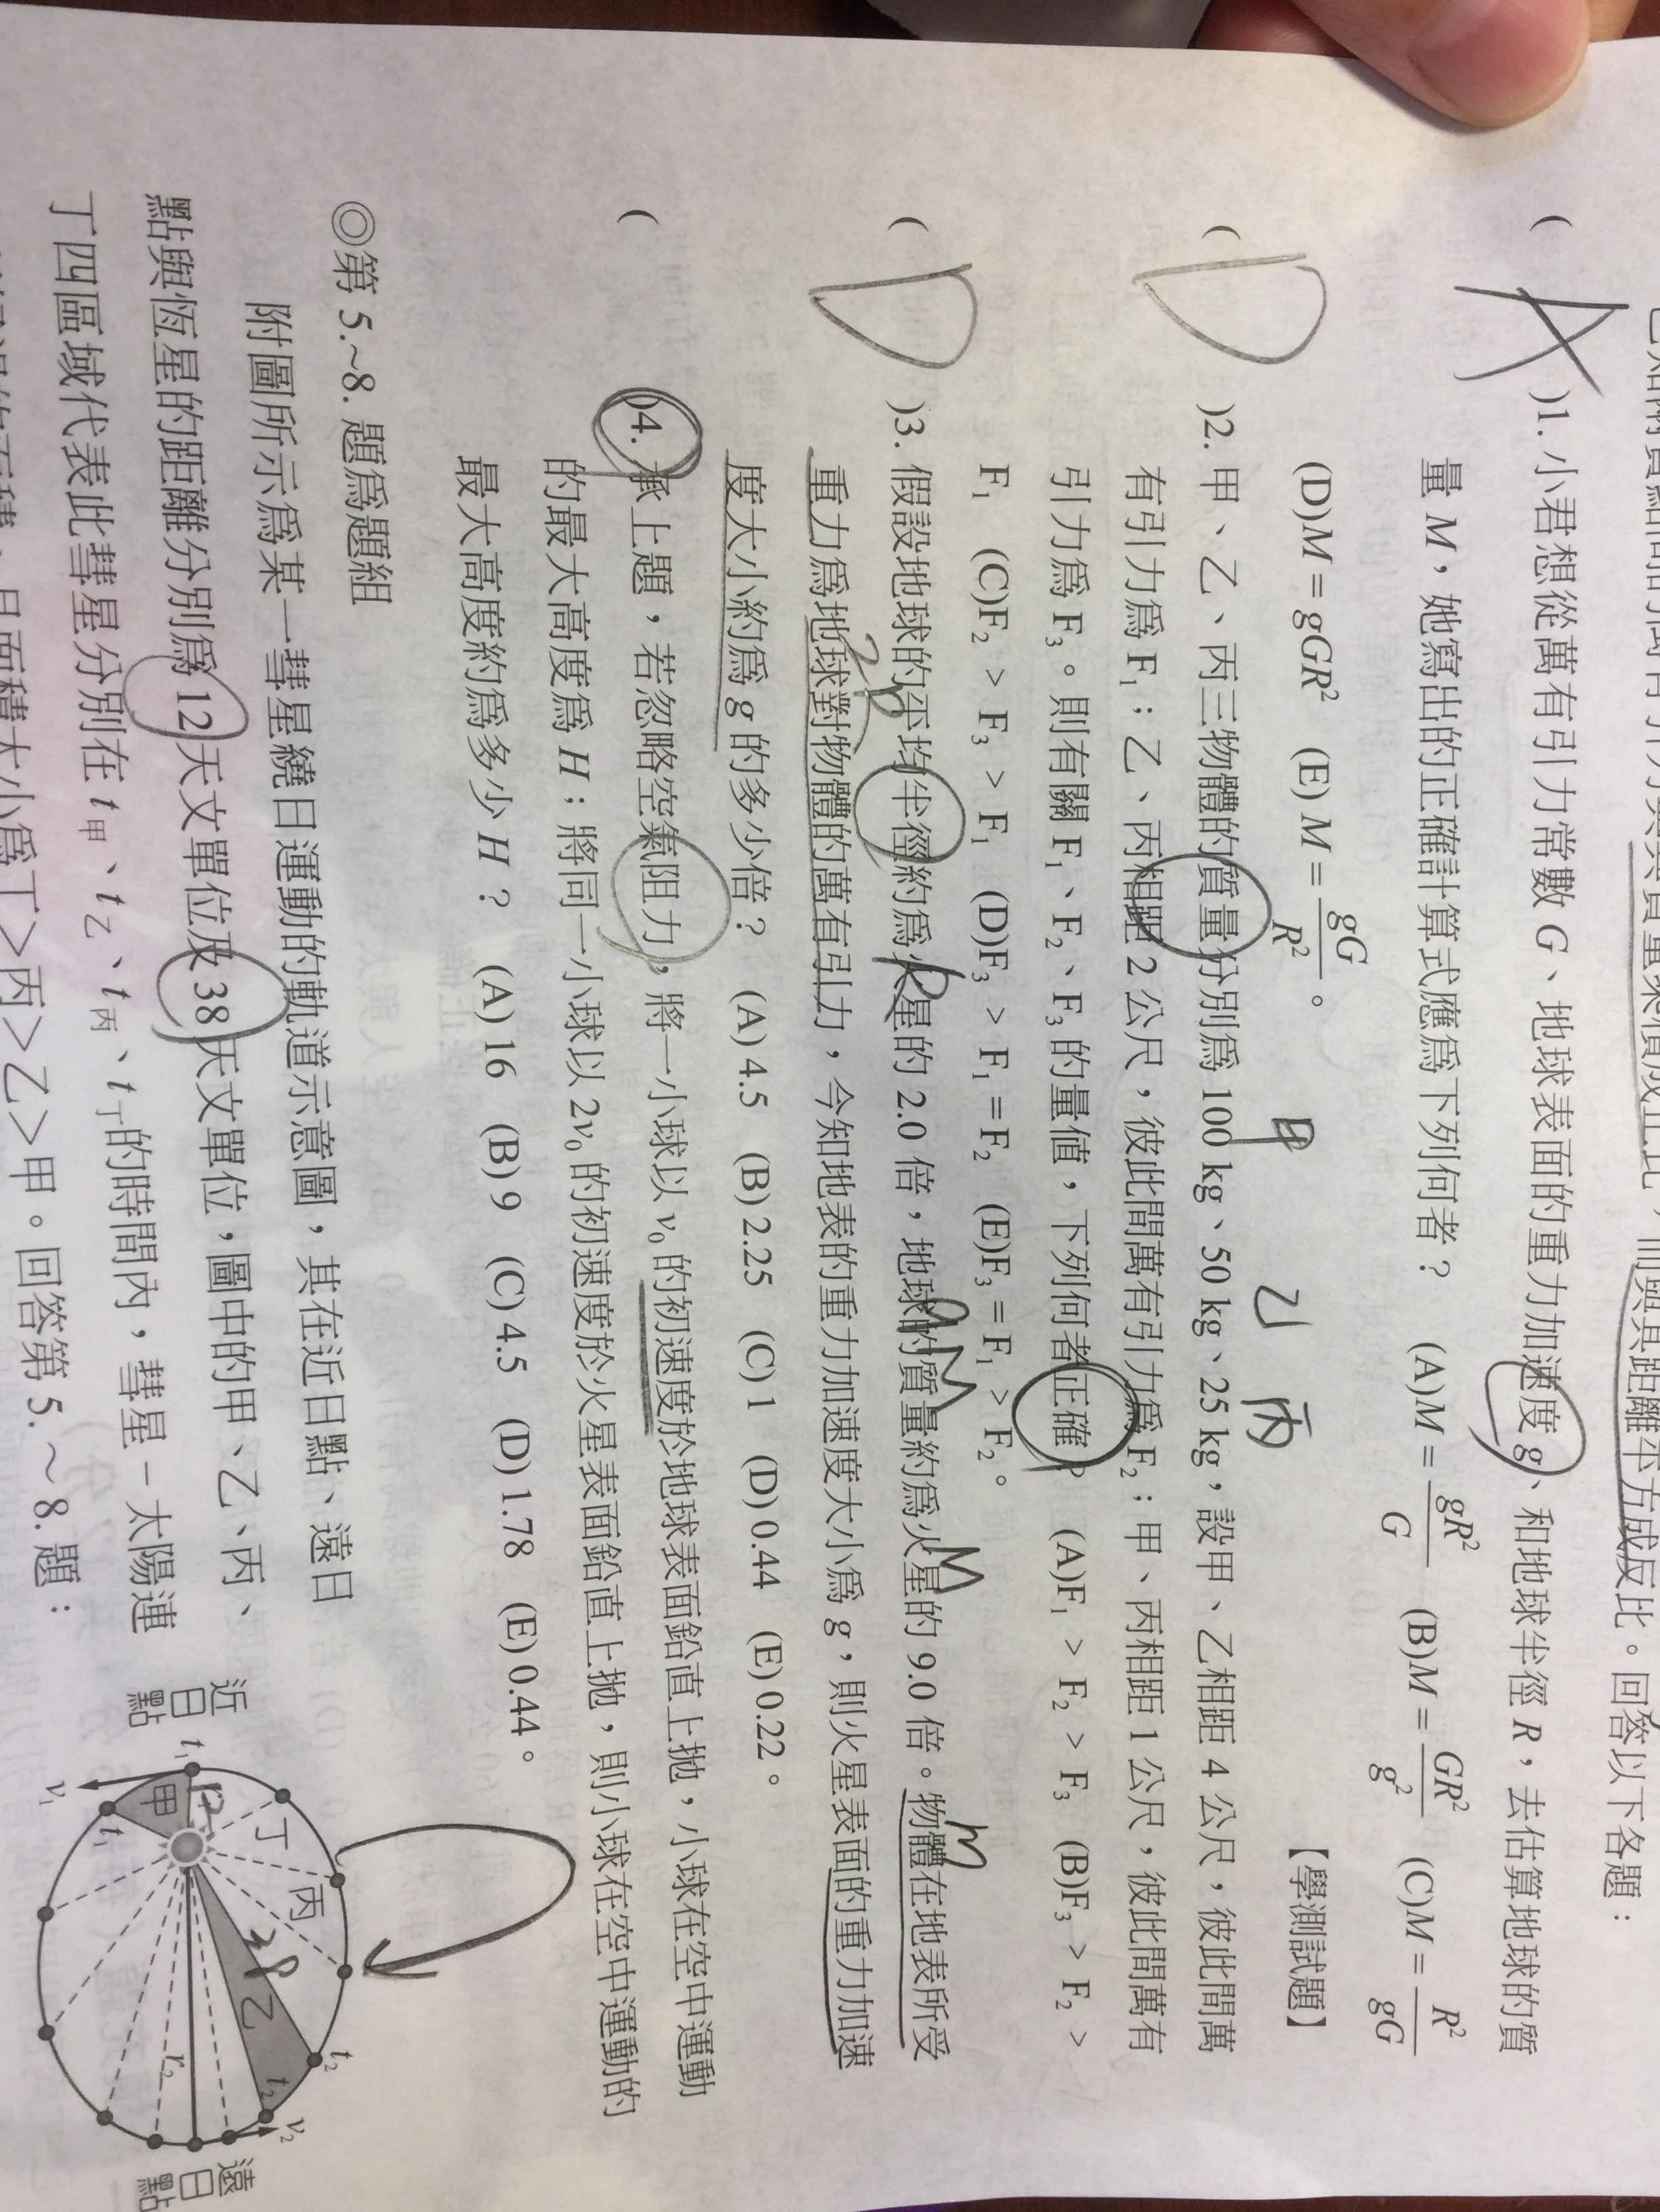 而與其距離平方成反比。回答以下各題：
( A )1. 小君想從萬有引力常數 G、地球表面的重力加速度 g、和地球半徑 R，去估算地球的質
量 M，她寫出的正確計算式應為下列何者？ (A)M = gR²/G (B)M = GR²/g² (C)M = R²/gG
(D)M = gGR² (E) M = gG/R²。 【學測試題】
甲 乙 丙
( D )2. 甲、乙、丙三物體的質量分別為 100 kg、50 kg、25 kg，設甲、乙相距 4 公尺，彼此間萬
有引力為 F₁；乙、丙相距 2 公尺，彼此間萬有引力為 F₂；甲、丙相距 1 公尺，彼此間萬有
引力為 F₃。則有關 F₁、F₂、F₃ 的量值，下列何者正確？ (A)F₁ > F₂ > F₃ (B)F₃ > F₂ >
F₁ (C)F₂ > F₃ > F₁ (D)F₃ > F₁ = F₂ (E)F₃ = F₁ > F₂。
( D )3. 假設地球的平均半徑約為火星的 2.0 倍，地球的質量約為火星的 9.0 倍。物體在地表所受
重力為地球對物體的萬有引力，今知地表的重力加速度大小為 g，則火星表面的重力加速
度大小約為 g 的多少倍？ (A) 4.5 (B) 2.25 (C) 1 (D) 0.44 (E) 0.22。
( )4. 承上題，若忽略空氣阻力，將一小球以 v₀ 的初速度於地球表面鉛直上拋，小球在空中運動
的最大高度為 H；將同一小球以 2v₀ 的初速度於火星表面鉛直上拋，則小球在空中運動的
最大高度約為多少 H？ (A) 16 (B) 9 (C) 4.5 (D) 1.78 (E) 0.44。
◎第 5.~8. 題為題組
附圖所示為某一彗星繞日運動的軌道示意圖，其在近日點、遠日
點與恆星的距離分別為 12 天文單位及 38 天文單位，圖中的甲、乙、丙、
丁四區域代表此彗星分別在 t甲、t乙、t丙、t丁的時間內，彗星－太陽連
且面積大小為丁＞丙＞乙＞甲。回答第 5.～8. 題：
近日點
t₁
甲
t₁
v₁
丁
丙
乙
r₂
t₂
t₂
v₂
遠日點